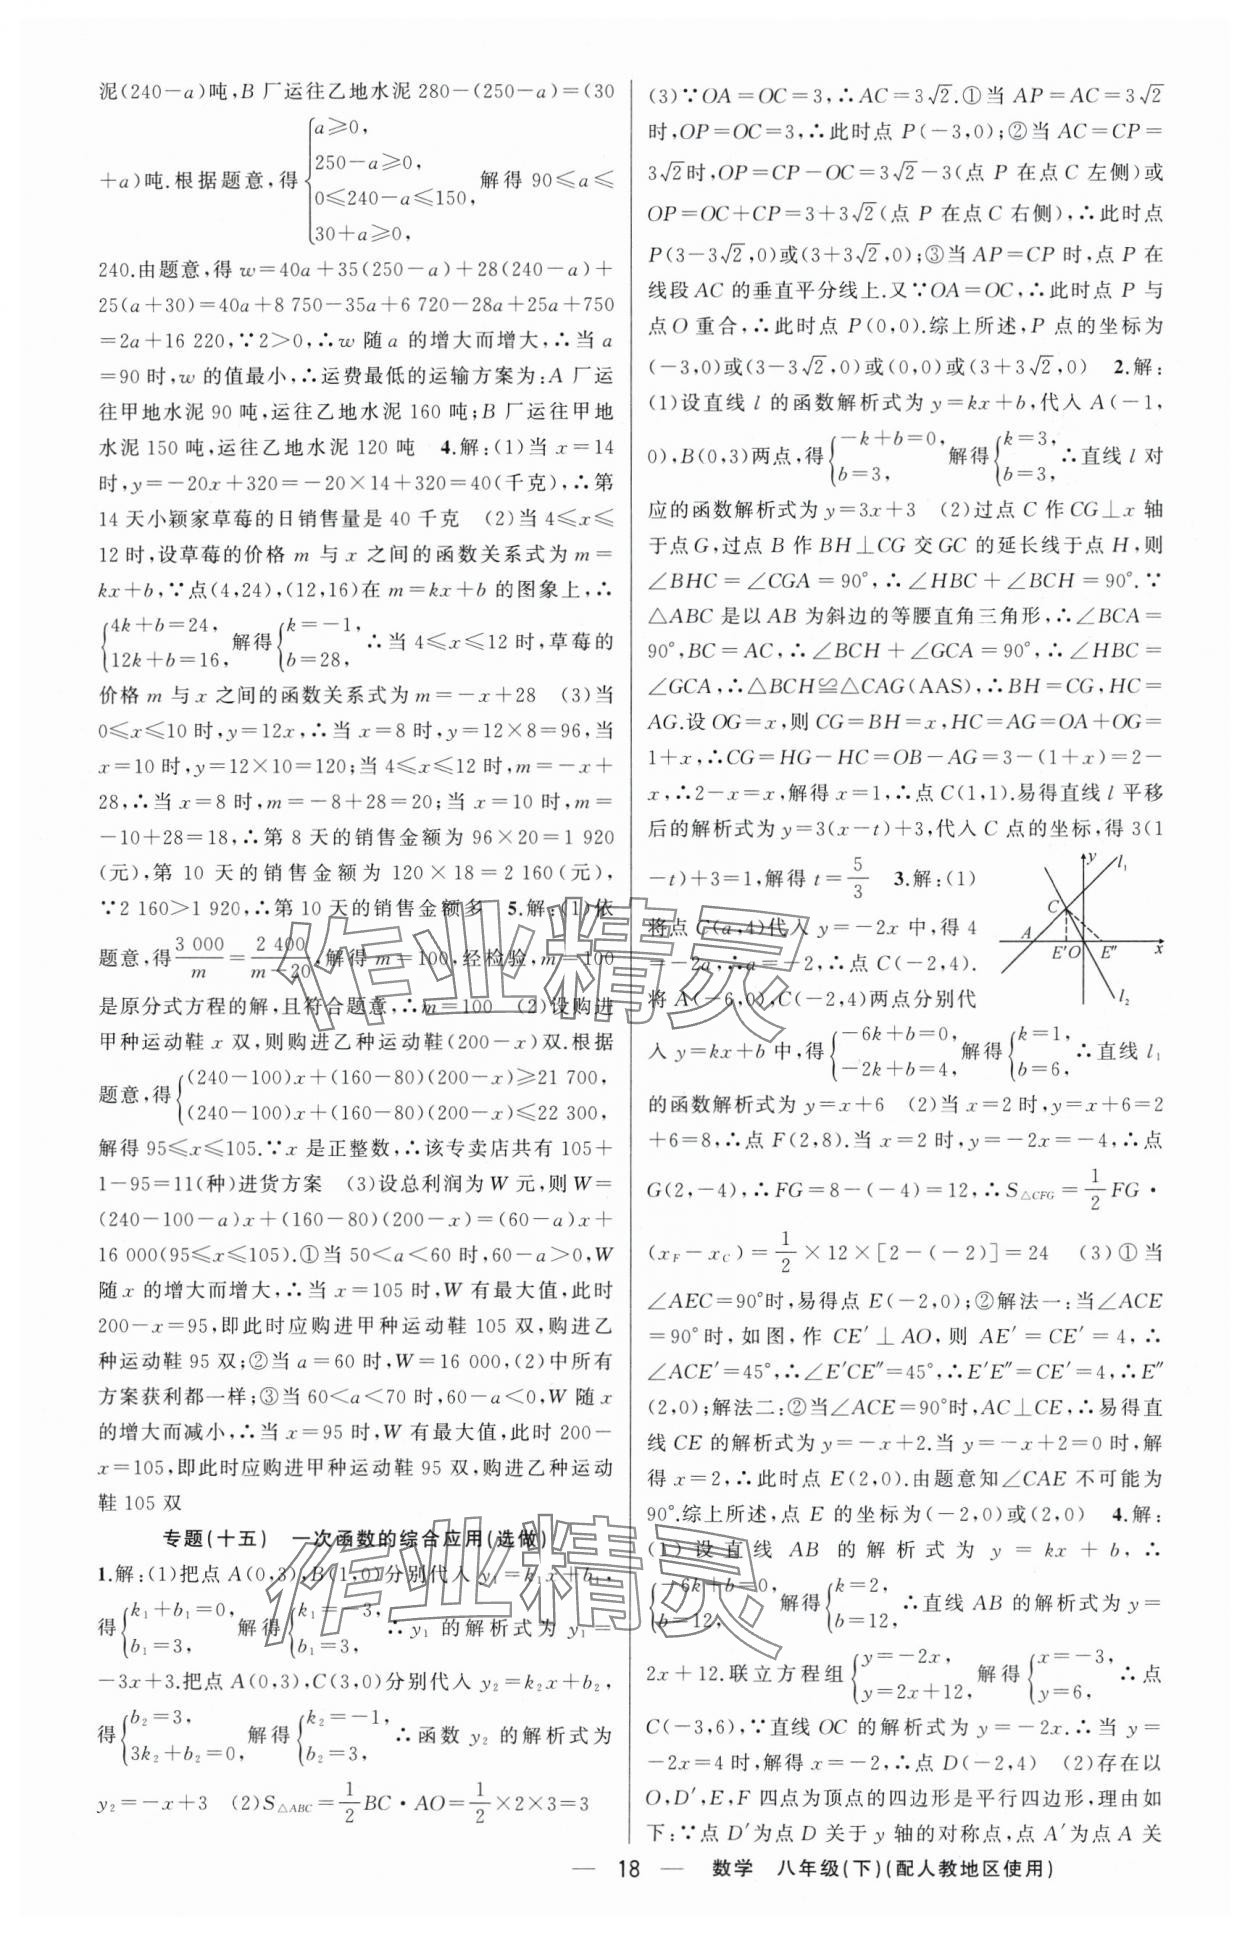 泥(240-a)吨,B 厂运往乙地水泥 280-(250-a)=(30
+a)吨.根据题意,得{a≥0, 250-a≥0, 0≤240-a≤150, 30+a≥0, 解得 90≤a≤
240.由题意,得 w=40a+35(250-a)+28(240-a)+
25(a+30)=40a+8 750-35a+6 720-28a+25a+750
=2a+16 220,∵2>0,∴w 随 a 的增大而增大,∴当 a
=90 时,w 的值最小,∴运费最低的运输方案为:A 厂运
往甲地水泥 90 吨,运往乙地水泥 160 吨;B 厂运往甲地
水泥 150 吨,运往乙地水泥 120 吨 4.解:(1)当 x=14
时,y=-20x+320=-20×14+320=40(千克),∴第
14 天小颖家草莓的日销售量是 40 千克 (2)当 4≤x≤
12 时,设草莓的价格 m 与 x 之间的函数关系式为 m=
kx+b,∵点(4,24),(12,16)在 m=kx+b 的图象上,∴
{4k+b=24, 12k+b=16, 解得{k=-1, b=28, ∴当 4≤x≤12 时,草莓的
价格 m 与 x 之间的函数关系式为 m=-x+28 (3)当
0≤x≤10 时,y=12x,∴当 x=8 时,y=12×8=96,当
x=10 时,y=12×10=120;当 4≤x≤12 时,m=-x+
28,∴当 x=8 时,m=-8+28=20;当 x=10 时,m=
-10+28=18,∴第 8 天的销售金额为 96×20=1 920
(元),第 10 天的销售金额为 120×18=2 160(元),
∵2 160>1 920,∴第 10 天的销售金额多 5.解:(1)依
题意,得3 000/m=2 400/(m-20),解得 m=100,经检验,m=100
是原分式方程的解,且符合题意,∴m=100 (2)设购进
甲种运动鞋 x 双,则购进乙种运动鞋(200-x)双.根据
题意,得{(240-100)x+(160-80)(200-x)≥21 700, (240-100)x+(160-80)(200-x)≤22 300,
解得 95≤x≤105.∵x 是正整数,∴该专卖店共有 105+
1-95=11(种)进货方案 (3)设总利润为 W 元,则 W=
(240-100-a)x+(160-80)(200-x)=(60-a)x+
16 000(95≤x≤105).①当 50<a<60 时,60-a>0,W
随 x 的增大而增大,∴当 x=105 时,W 有最大值,此时
200-x=95,即此时应购进甲种运动鞋 105 双,购进乙
种运动鞋 95 双;②当 a=60 时,W=16 000,(2)中所有
方案获利都一样;③当 60<a<70 时,60-a<0,W 随 x
的增大而减小,∴当 x=95 时,W 有最大值,此时 200-
x=105,即此时应购进甲种运动鞋 95 双,购进乙种运动
鞋 105 双
专题(十五) 一次函数的综合应用(选做)
1.解:(1)把点 A(0,3),B(1,0)分别代入 y₁=k₁x+b₁,
得{k₁+b₁=0, b₁=3, 解得{k₁=-3, b₁=3, ∴y₁ 的解析式为 y₁=
-3x+3.把点 A(0,3),C(3,0)分别代入 y₂=k₂x+b₂,
得{b₂=3, 3k₂+b₂=0, 解得{k₂=-1, b₂=3, ∴函数 y₂ 的解析式为
y₂=-x+3 (2)S△ABC=1/2BC·AO=1/2×2×3=3
(3)∵OA=OC=3,∴AC=3√2.①当 AP=AC=3√2
时,OP=OC=3,∴此时点 P(-3,0);②当 AC=CP=
3√2时,OP=CP-OC=3√2-3(点 P 在点 C 左侧)或
OP=OC+CP=3+3√2(点 P 在点 C 右侧),∴此时点
P(3-3√2,0)或(3+3√2,0);③当 AP=CP 时,点 P 在
线段 AC 的垂直平分线上.又∵OA=OC,∴此时点 P 与
点 O 重合,∴此时点 P(0,0).综上所述,P 点的坐标为
(-3,0)或(3-3√2,0)或(0,0)或(3+3√2,0) 2.解:
(1)设直线 l 的函数解析式为 y=kx+b,代入 A(-1,
0),B(0,3)两点,得{-k+b=0, b=3, 解得{k=3, b=3, ∴直线 l 对
应的函数解析式为 y=3x+3 (2)过点 C 作 CG⊥x 轴
于点 G,过点 B 作 BH⊥CG 交 GC 的延长线于点 H,则
∠BHC=∠CGA=90°,∴∠HBC+∠BCH=90°.∵
△ABC 是以 AB 为斜边的等腰直角三角形,∴∠BCA=
90°,BC=AC,∴∠BCH+∠GCA=90°,∴∠HBC=
∠GCA,∴△BCH≌△CAG(AAS),∴BH=CG,HC=
AG.设 OG=x,则 CG=BH=x,HC=AG=OA+OG=
1+x,∴CG=HG-HC=OB-AG=3-(1+x)=2-
x,∴2-x=x,解得 x=1,∴点 C(1,1).易得直线 l 平移
后的解析式为 y=3(x-t)+3,代入 C 点的坐标,得 3(1
-t)+3=1,解得 t=5/3 3.解:(1)
将点 C(a,4)代入 y=-2x 中,得 4
=-2a,∴a=-2,∴点 C(-2,4).
将 A(-6,0),C(-2,4)两点分别代
y l₁ C A E′ O E″ x l₂
入 y=kx+b 中,得{-6k+b=0, -2k+b=4, 解得{k=1, b=6, ∴直线 l₁
的函数解析式为 y=x+6 (2)当 x=2 时,y=x+6=2
+6=8,∴点 F(2,8).当 x=2 时,y=-2x=-4,∴点
G(2,-4),∴FG=8-(-4)=12,∴S△CFG=1/2FG·
(xF-xC)=1/2×12×[2-(-2)]=24 (3)①当
∠AEC=90°时,易得点 E(-2,0);②解法一:当∠ACE
=90°时,如图,作 CE′⊥AO,则 AE′=CE′=4,∴
∠ACE′=45°,∴∠E′CE″=45°,∴E′E″=CE′=4,∴E″
(2,0);解法二:②当∠ACE=90°时,AC⊥CE,∴易得直
线 CE 的解析式为 y=-x+2.当 y=-x+2=0 时,解
得 x=2,∴此时点 E(2,0).由题意知∠CAE 不可能为
90°.综上所述,点 E 的坐标为(-2,0)或(2,0) 4.解:
(1)设直线 AB 的解析式为 y=kx+b,∴
{-6k+b=0, b=12, 解得{k=2, b=12, ∴直线 AB 的解析式为 y=
2x+12.联立方程组{y=-2x, y=2x+12, 解得{x=-3, y=6, ∴点
C(-3,6),∵直线 OC 的解析式为 y=-2x.∴当 y=
-2x=4 时,解得 x=-2,∴点 D(-2,4) (2)存在以
O,D′,E,F 四点为顶点的四边形是平行四边形,理由如
下:∵点 D′为点 D 关于 y 轴的对称点,点 A′为点 A 关
— 18 — 数学 八年级(下)(配人教地区使用)
作业精灵
作业精灵